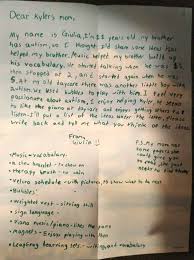 Dear Kyler's mom,
My name is Giulia, I'm 11 years old. My brother
has autism, so I thought I'd share some ideas that
helped my brother. Music helped my brother build up
his vocabulary. He started talking when he was
then stopped at 2, and started again when he was
5. At my daycare there was another little boy with
autism. We used to play with him. I feel very
passionate about autism, I enjoy helping
to like the piano at daycare and enjoy getting others to
listen. I'll put a list of the ideas under the letter, please
write back and tell me what you think of the ideas.
From,
Giulia!!
• Music - vocabulary
• a chew bracelet - to chew on
• therapy brush - to calm
• Velcro schedule - with pictures, to show what to do next
• Bubbles
• Weighted vest - sitting still
• sign language
• Piano music/piano - likes the piano
• Magnets - Enjoys playing with them
• Leapfrog learning sets - writing and vocabulary
P.S. My mom has
some papers she
could give you
to read